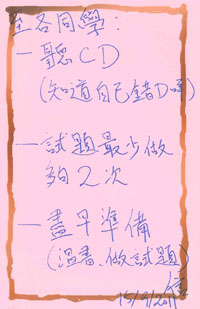 至各同學：
一聽CD
(知道自己錯D咩)
一試題最少做
夠2次
一盡早準備
(溫書、做試題)
15/9/2011